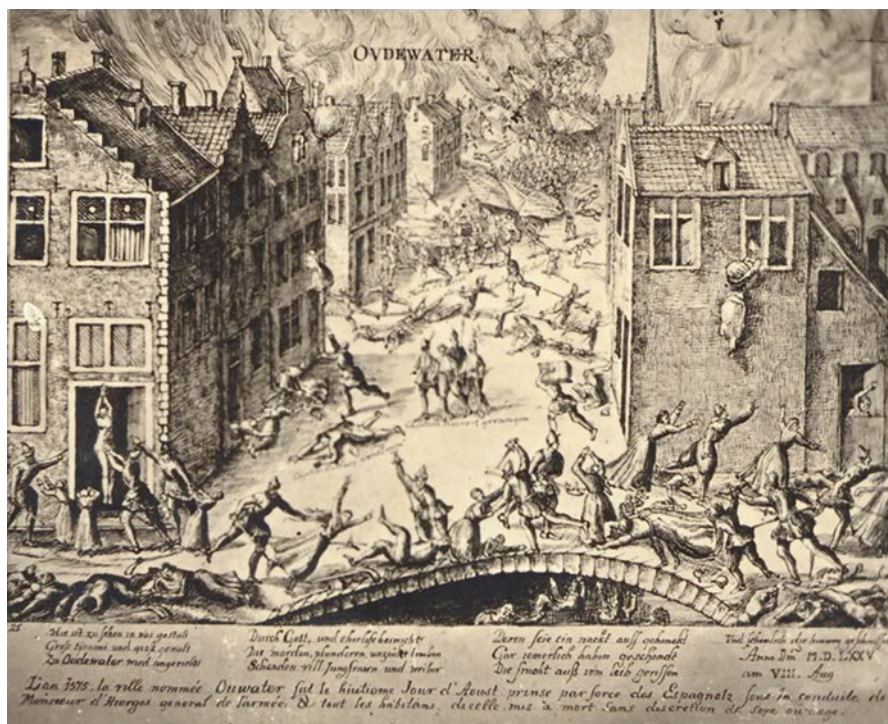 OVDEWATER.
Hie ist zu sehen in was gestalt
Groß tiranni und groß gewalt
Zu Oudewater wird angericht
Durch Gott, und ehrlose
Die morden, plunderen, unzücht treiben
Schenden vill Jungfrauen und weiber
Deren seie ein nackt auff gehenckt
Gar iemerlich haben geschendt
Die frucht auß irm leib gerissen
Und schentlich die
Anno Dni M.D.LXXV
am VIII. Aug
L'an 1575. la ville nommée Ouwater fut le huitiome Jour d'Aoust prinse par force des Espagnolz sous la conduite de
Monsieur d'Hierges general de l'armée, & tout les habitans, dicelle, mis a mort sans discretion de sexe ou eage.